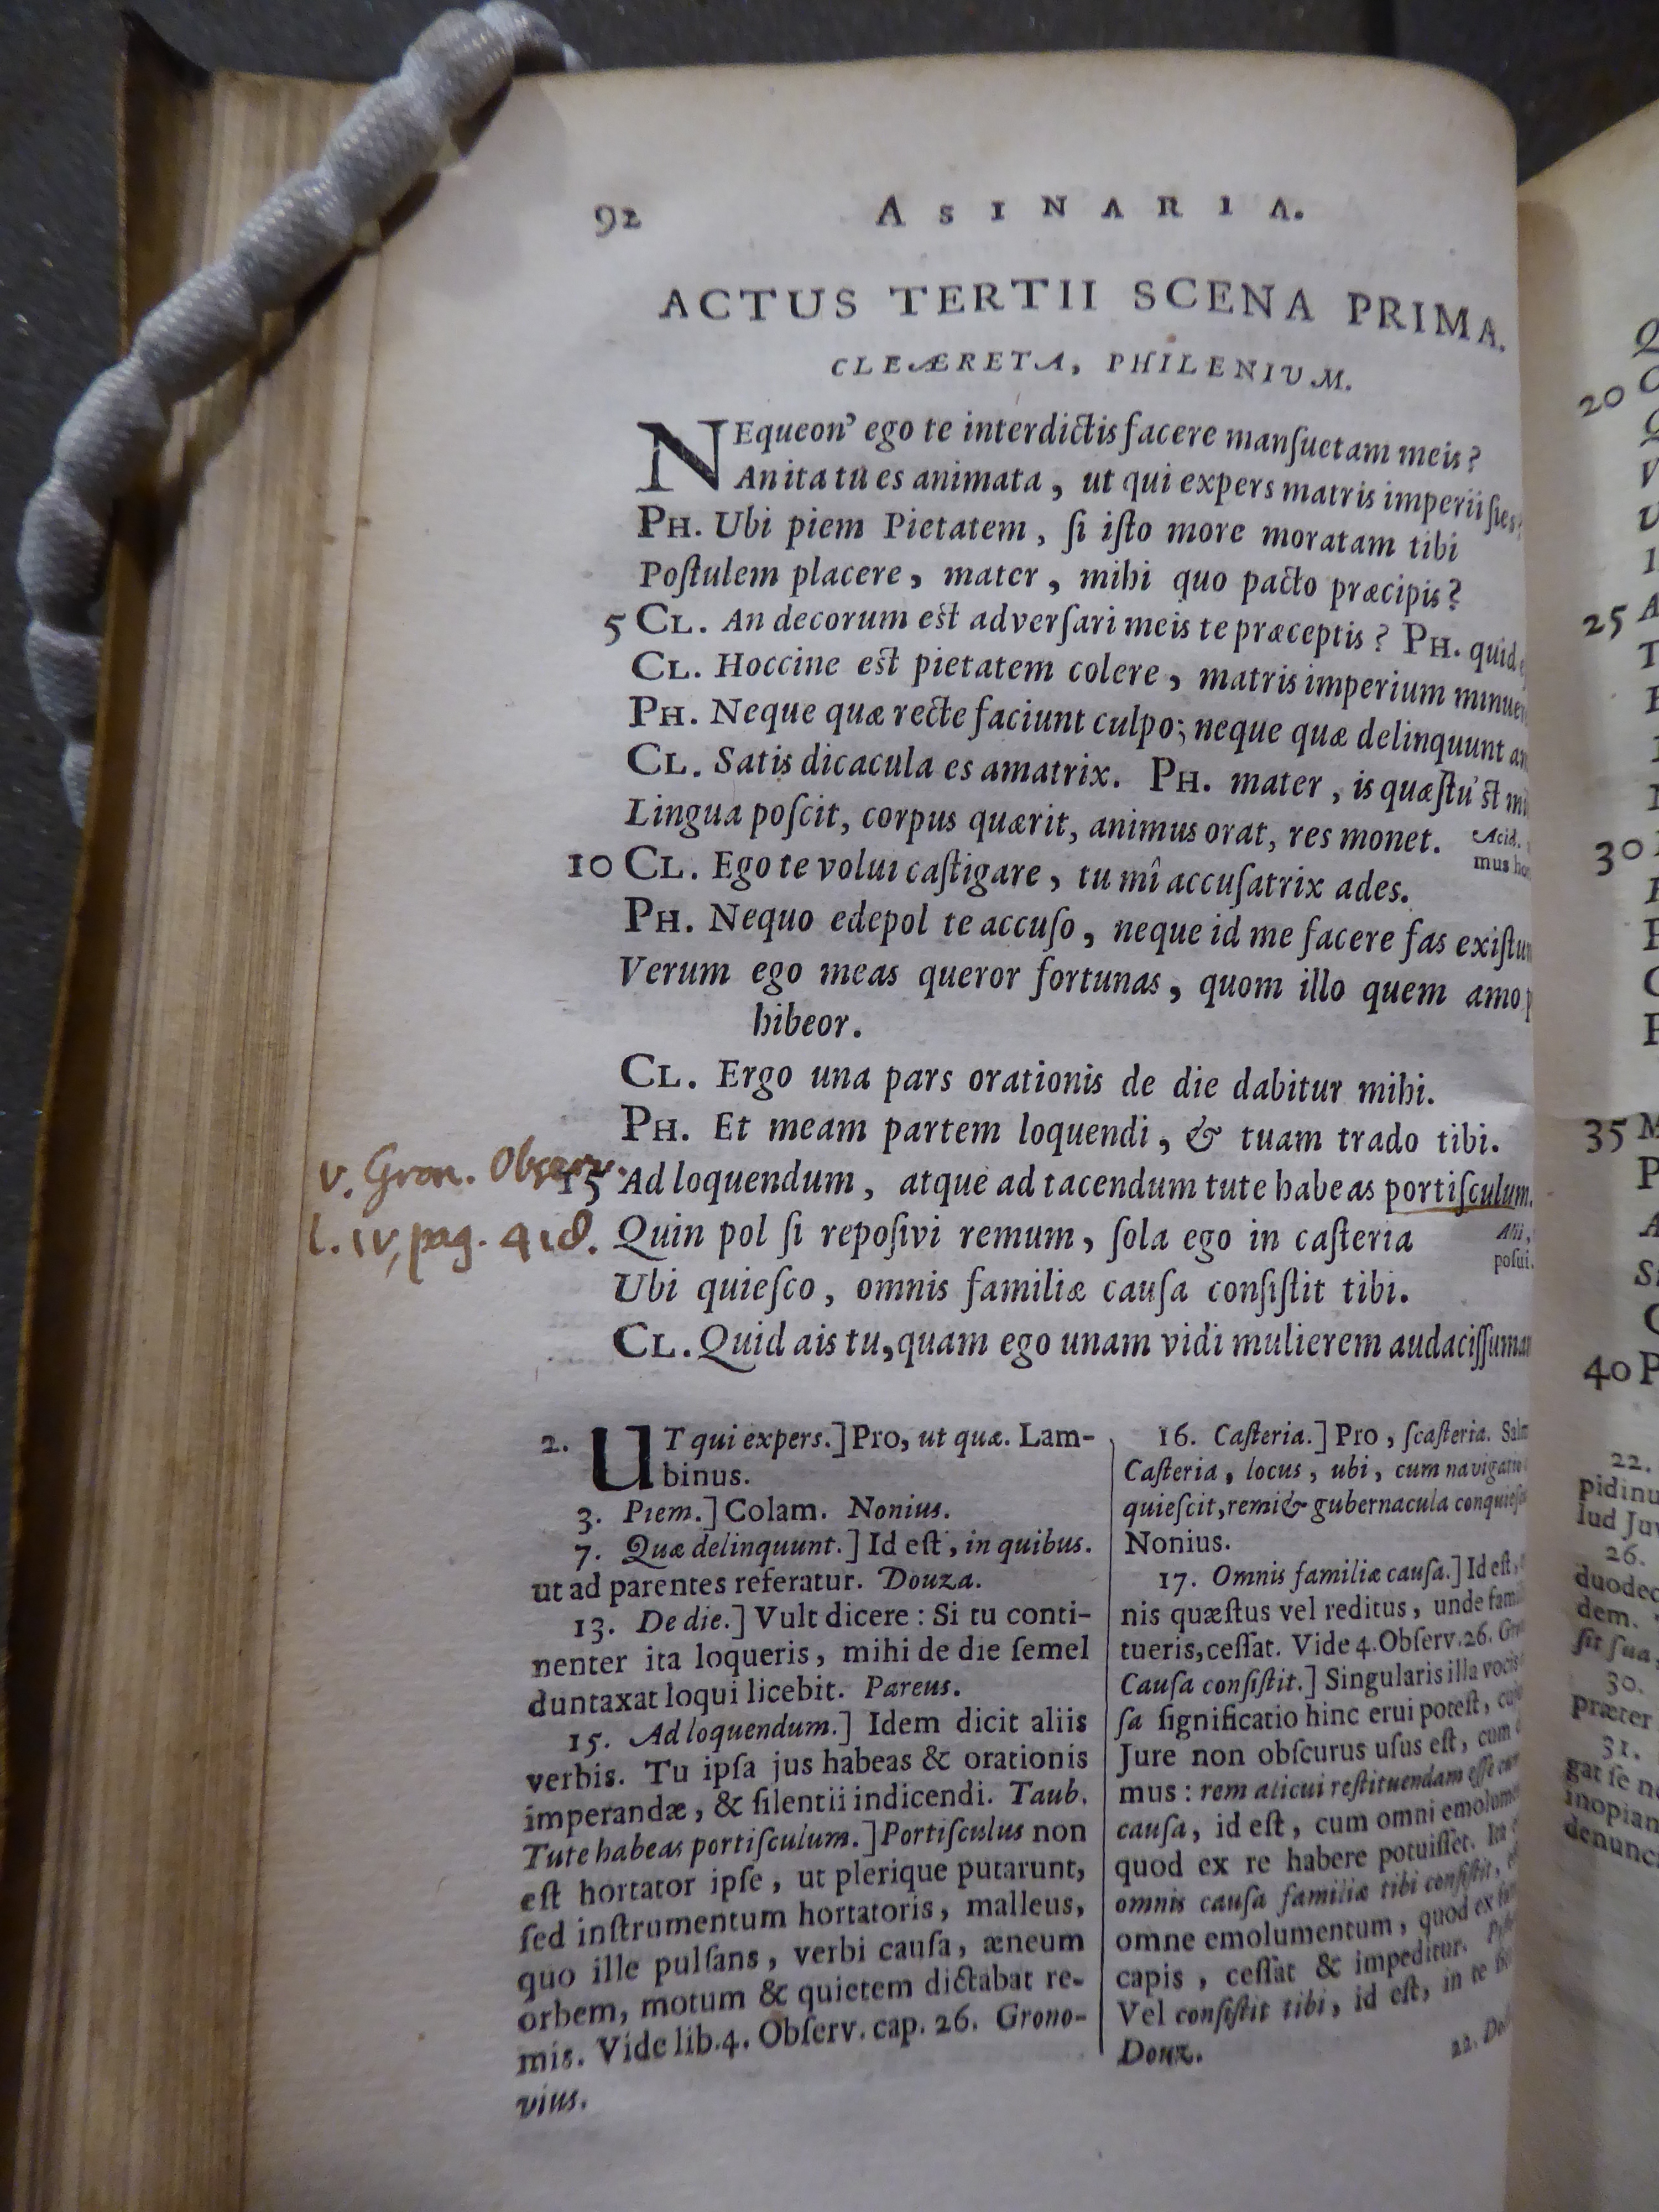 92 ASINARIA.
ACTUS TERTII SCENA PRIMA.
CLEÆRETA, PHILENIUM.
NEqueon' ego te interdictis facere manſuetam meis?
An ita tu es animata, ut qui expers matris imperii ſies?
PH. Ubi piem Pietatem, ſi iſto more moratam tibi
Poſtulem placere, mater, mihi quo pacto præcipis?
5 CL. An decorum eſt adverſari meis te præceptis? PH. quid
CL. Hoccine eſt pietatem colere, matris imperium
PH. Neque quæ recte faciunt culpo; neque quæ delinquunt
CL. Satis dicacula es amatrix. PH. mater, is quæſtu'ſt
Lingua poſcit, corpus quærit, animus orat, res monet.
Acid.
mus
10 CL. Ego te volui caſtigare, tu mî accuſatrix ades.
PH. Nequo edepol te accuſo, neque id me facere fas
Verum ego meas queror fortunas, quom illo quem amo
hibeor.
CL. Ergo una pars orationis de die dabitur mihi.
PH. Et meam partem loquendi, & tuam trado tibi.
v. Gron. Observ.
15 Ad loquendum, atque ad tacendum tute habeas portiſculum.
l. IV, pag. 418.
Quin pol ſi repoſivi remum, ſola ego in caſteria
Alii,
poſui.
Ubi quieſco, omnis familiæ cauſa conſiſtit tibi.
CL. Quid ais tu, quam ego unam vidi mulierem
2. UT qui expers.] Pro, ut quæ. Lam-
binus.
3. Piem.] Colam. Nonius.
7. Quæ delinquunt.] Id eſt, in quibus.
ut ad parentes referatur. Douza.
13. De die.] Vult dicere: Si tu conti-
nenter ita loqueris, mihi de die ſemel
duntaxat loqui licebit. Pareus.
15. Ad loquendum.] Idem dicit aliis
verbis. Tu ipſa jus habeas & orationis
imperandæ, & ſilentii indicendi. Taub.
Tute habeas portiſculum.] Portiſculus non
eſt hortator ipſe, ut plerique putarunt,
ſed inſtrumentum hortatoris, malleus,
quo ille pulſans, verbi cauſa, æneum
orbem, motum & quietem dictabat re-
mis. Vide lib.4. Obſerv. cap. 26. Grono-
vius.
16. Caſteria.] Pro, ſcaſteria.
Caſteria, locus, ubi, cum
quieſcit, remi & gubernacula
Nonius.
17. Omnis familiæ cauſa.] Id eſt,
nis quæſtus vel reditus, unde
tueris, ceſſat. Vide 4. Obſerv. 26.
Cauſa conſiſtit.] Singularis illa
ſa ſignificatio hinc erui poteſt,
Jure non obſcurus uſus eſt, cum
mus: rem alicui reſtituendam eſſe
cauſa, id eſt, cum omni
quod ex re habere potuiſſet. Ita
omnis cauſa familiæ tibi conſiſtit,
omne emolumentum, quod ex
capis, ceſſat & impeditur.
Vel conſiſtit tibi, id eſt, in te
Douz.
22.
20
25
30
35
40
22.
pidinu
lud Juv
26.
duodec
dem.
ſit ſua,
30.
præter
31.
gat ſe
inopiam
denunc